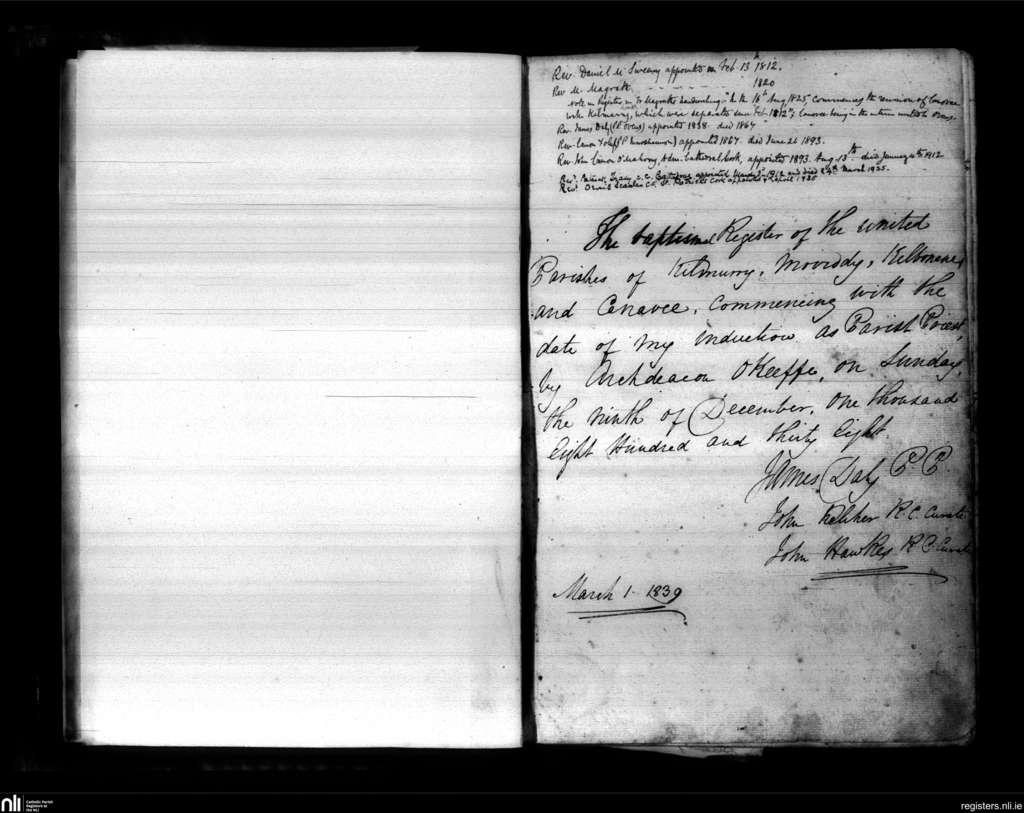 Rev. Daniel McSweeny appointed on Feb 13 1812.
Rev M. Magrath - - - - - - 1820
note in Register, in Fr Magrath's handwriting - " 16th Aug 1825, Commences the reunion of Canovee
with Kilmurry, which were separated since Feb 1812"; Canovee being in the interim united to Ovens.
Rev. James Daly (PP Ovens) appointed 1838. died 1867
Rev. Canon Foley (PP ) appointed 1867. died June 26 1893.
Rev. John Canon O'Mahony, Adm. Cathedral Cork, appointed 1893. Aug. 13th. died January 1912
Rev. Patrick Tracy C.C. appointed 1912 and died 24th March 1935.
Rev. Denis Scanlan C.C. St. Patrick's Cork appointed April 1935
The baptismal Register of the united
Parishes of Kilmurry, Moviddy, Kilbonane,
and Canavee, Commencing with the
date of my induction as Parish Priest,
by Archdeacon O'Keeffe, on Sunday
the ninth of December, One thousand
Eight Hundred and thirty Eight.
James Daly P P.
John Kelcher R.C. Curate
John Hawkes R C Curate
March 1. 1839
nli
Catholic Parish
Registers at
the NLI
registers.nli.ie